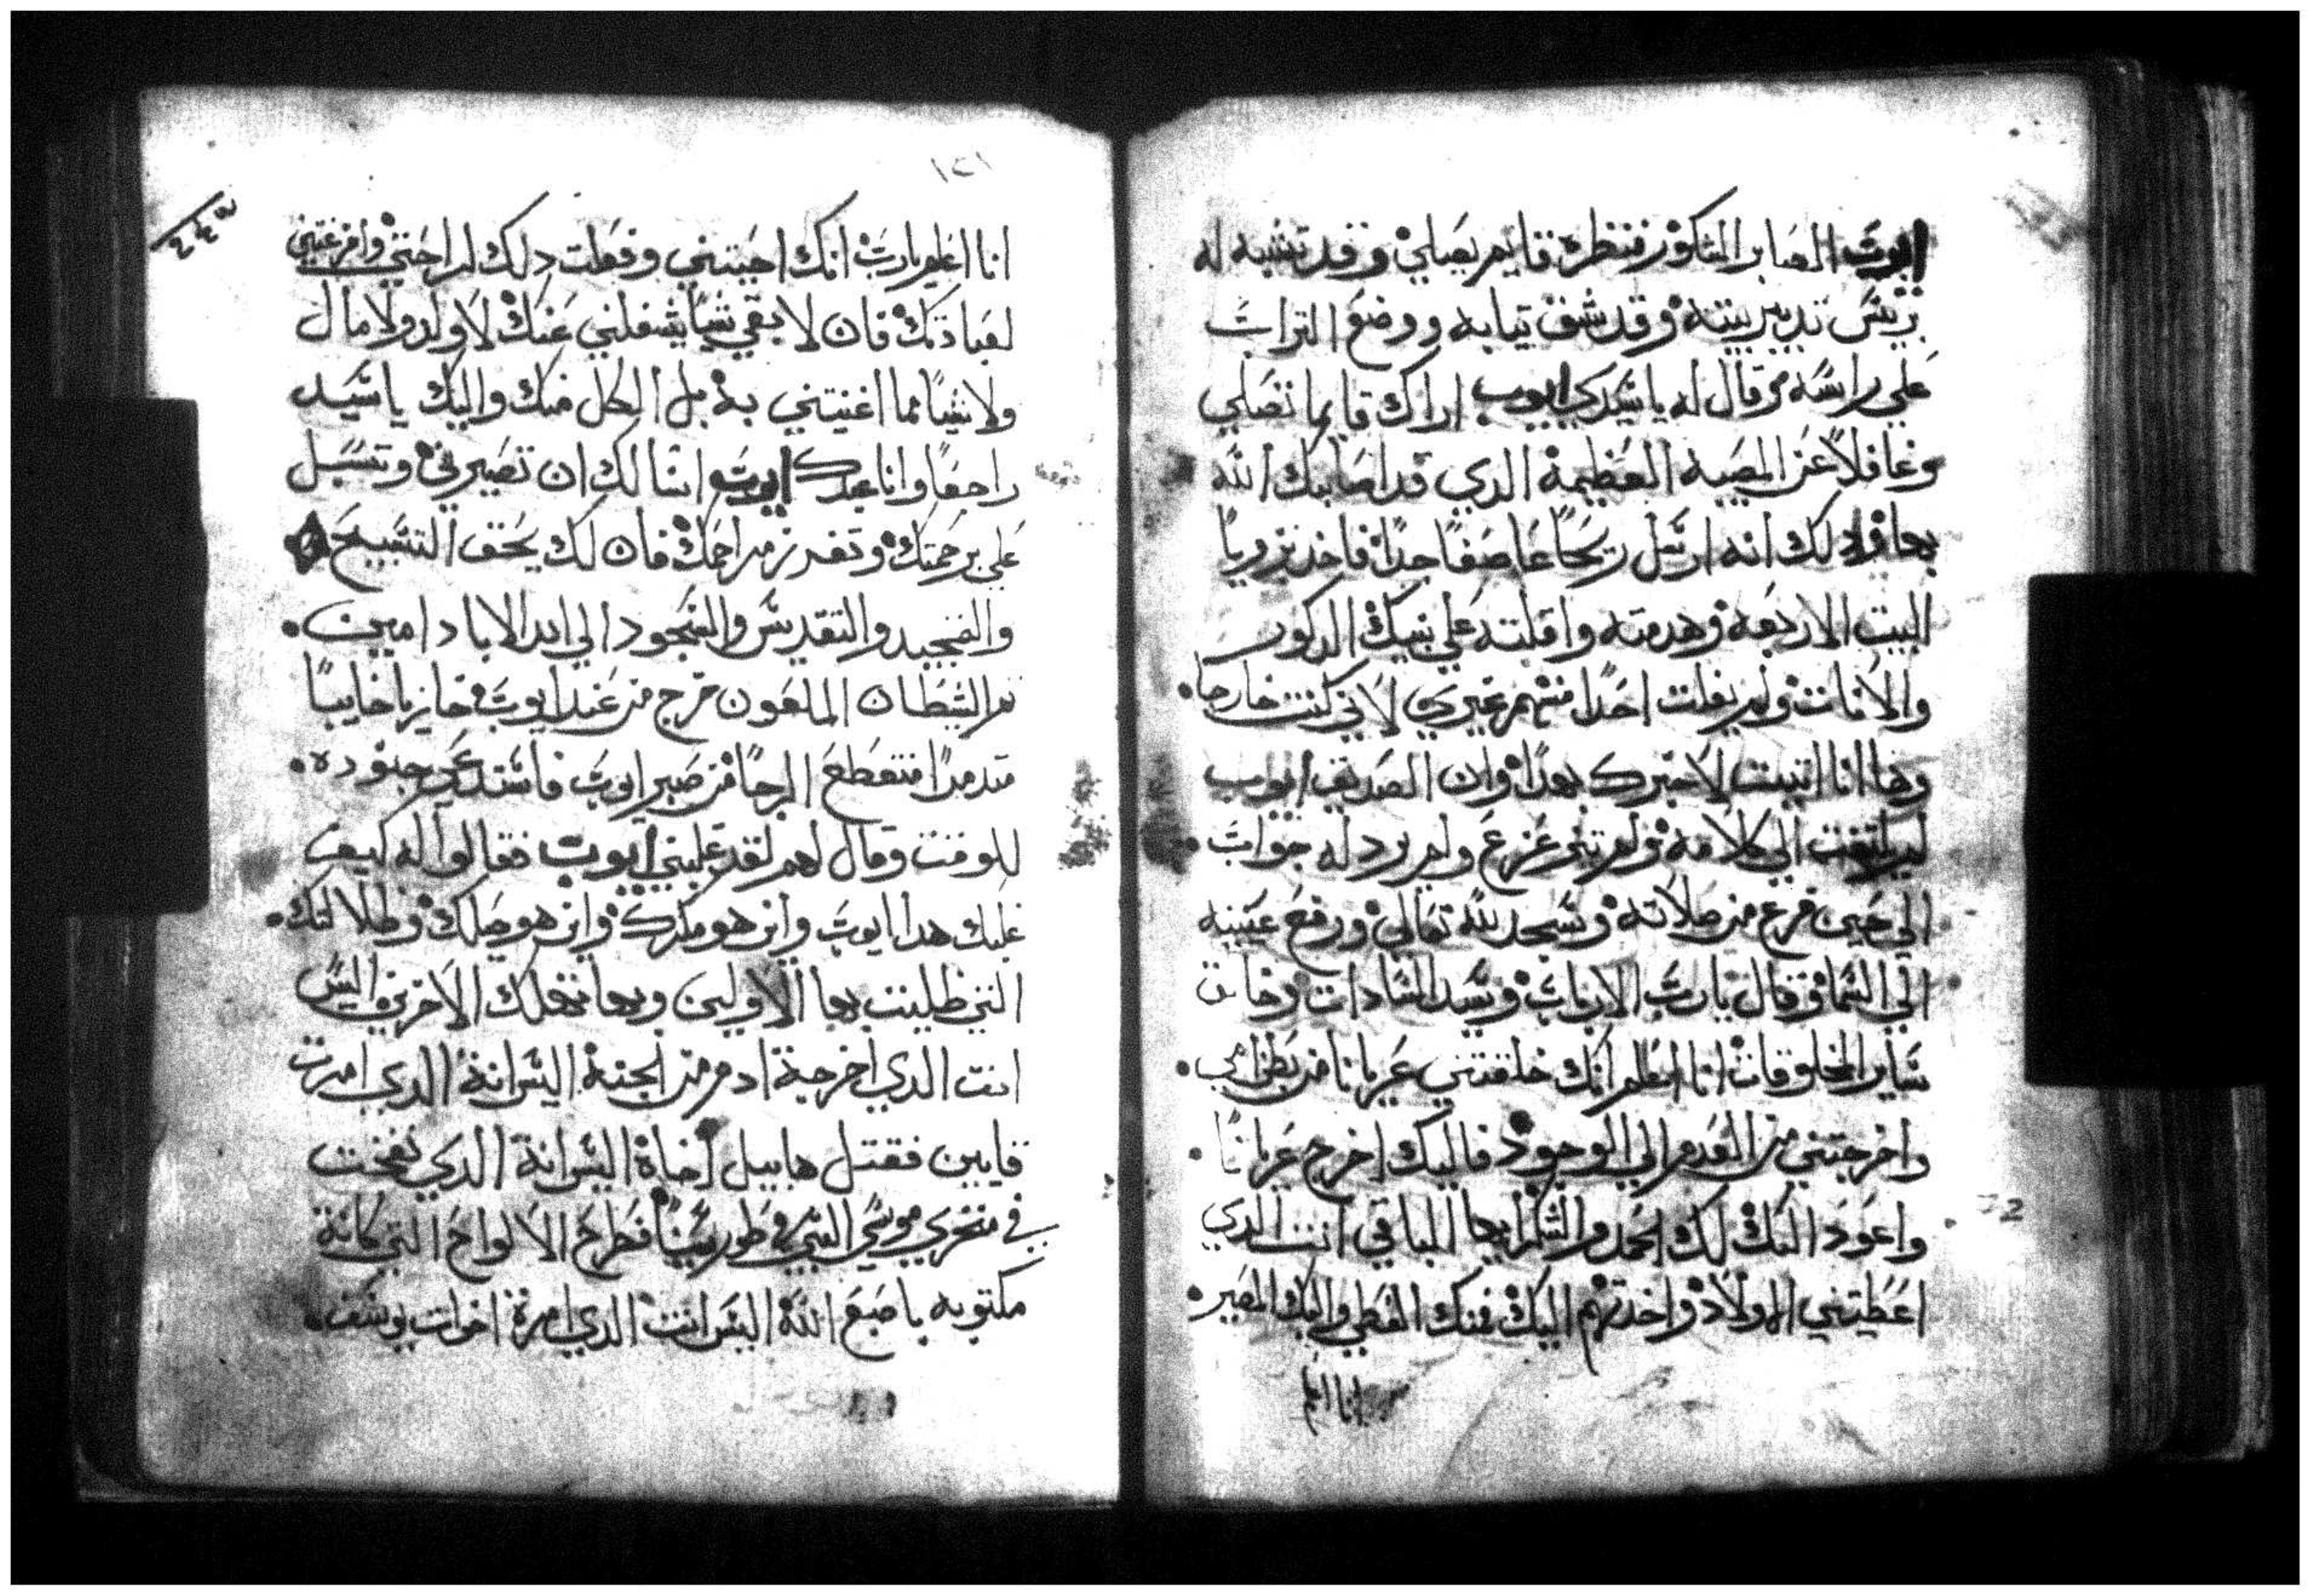 ايوب الصابر الشكور فنظره قايم يصلي وقد تشبه له
بريس تدبير بيته وقد شق تيابه ووضع التراب
علي راسه وقال له يا سيدي ايوب اراك قايما تصلي
وغافلاً عن المصيبه العظيمة الدي قد اصابك الله
بها ودلك انه ارسل ريحاً عاصفاً جداً فاخد بزوايا
البيت الاربعه وهدمته واقلبته علي بنيك الدكور
والاناث ولم يفلت احداً منهم غيري لاني كنت خارجا.
وها انا اتيت لاخبرك بهدا وان الصديق ايوب
لم التفت الي كلامه ولم تزعزع ولم يرد له جواب.
الي حين فرغ من صلاته وسجد لله تعالي ورفع عينيه
الي السما وقال يا رب الارباب وسيد السادات وخالق
ساير المخلوقات انا اعلم انك خلقتني عريانا من بطن امي.
واخرجتني من العدم الي الوجود فاليك اخرج عريانًا.
واعود اليك لك الحمد والشكر ايها الباقي انت الدي
اعطيتني الاولاد واخدتهم اليك فمنك العطي واليك المصير.
انا اعلم
١٢١
انا اعلم يارب انك احببتني وفعلت دلك لراحتي وافرغتني
لعبادتك فان لا بقي شياً يشغلني عنك لا ولد ولا مال
ولا شياً مما اغنيتني به بل الكل منك واليك يا سيد
راجعاً وانا عبدك ايوب اسالك ان تصيرني وتسبل
علي برحمتك وتفرز مراحمك فان لك يحق التسبيح
والتمجيد والتقديس والسجود الي ابد الاباد امين.
تم الشيطان الملعون خرج من عند ايوب خازيا خايباً
متدمراً منقطع الرجا من صبر ايوب فاستدعي جنوده.
للوقت وقال لهم لقد غلبني ايوب فقالوا له كيف
غلبك هدا ايوب واين هو مكرك واين هو حيلك وظلالتك.
التي ظليت بها الاولين وبها تهلك الاخرين اليس
انت الدي اخرجة ادم من الجنة اليس انة الدي امرت
قايين فقتل هابيل اخاة اليس انة الدي نفخت
في منخري موسي النبي في طور سينا فطرح الالواح التي كانة
مكتوبه باصبع الله اليس انت الدي امرة اخوات يوسف.